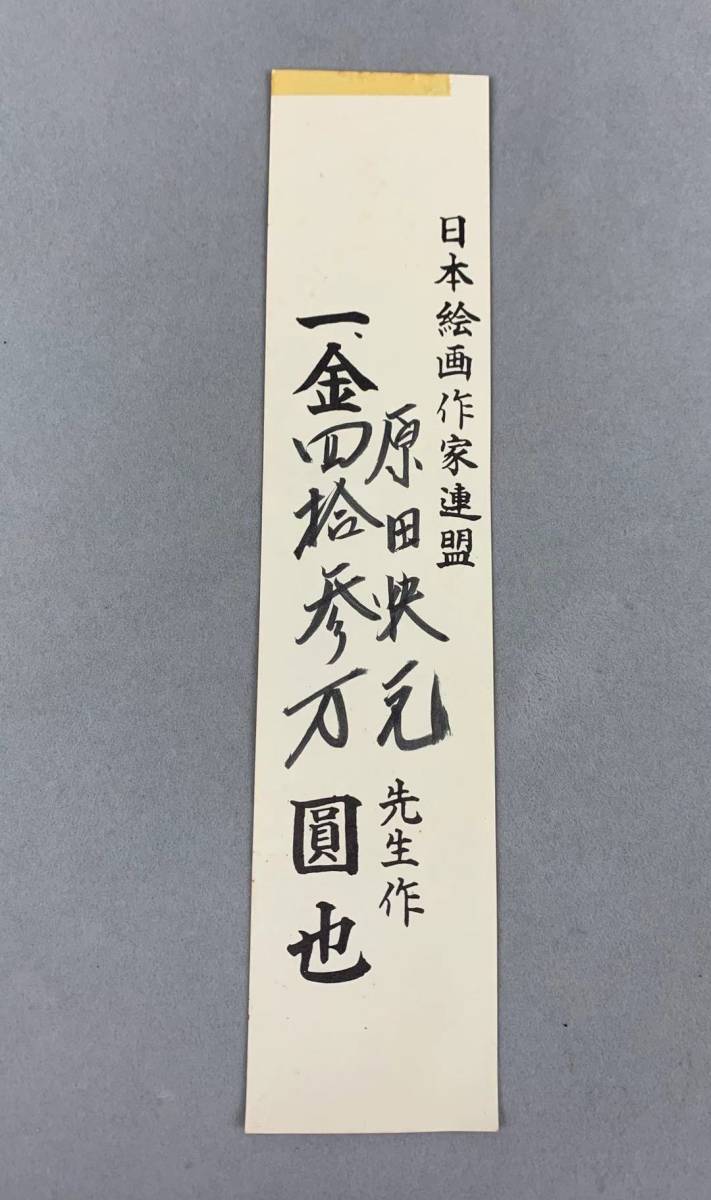 日本絵画作家連盟
原田映元先生作
一、金四拾参万圓也